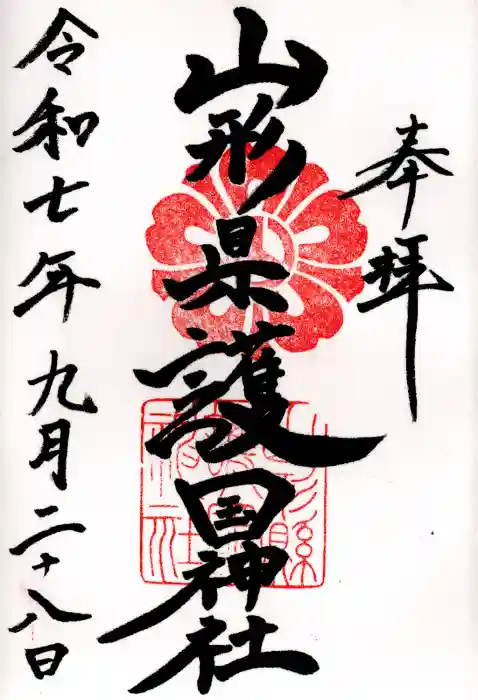 奉拝
山形県護国神社
令和七年九月二十八日